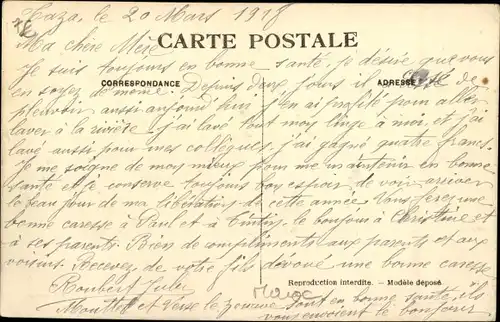 Taza, le 20 Mars 1918
Ma chère Mère
CARTE POSTALE
Je suis toujours en bonne santé, je désire que vous
CORRESPONDANCE
ADRESSE
en soyez de même. Depuis deux jours il de
pleuvoir aussi aujourd'hui j'en ai profité pour aller
laver à la rivière j'ai lavé tout mon linge à moi et j'ai
lavé aussi pour mes collègues, j'ai gagné quatre francs.
Je me soigne de mon mieux pour me maintenir en bonne
santé et je conserve toujours bon espoir de voir arriver
le beau jour de ma libération de cette année. Vous ferez une
bonne caresse à Paul et à Tintin, le bonjour à Christine et
à ses parents. Bien de compliments aux parents et aux
voisins. Recevez de votre fils dévoué une bonne caresse
Roubert Jules
Reproduction interdite. — Modèle déposé.
Maroc
et sont en bonne santé, ils
vous envoient le bonjour